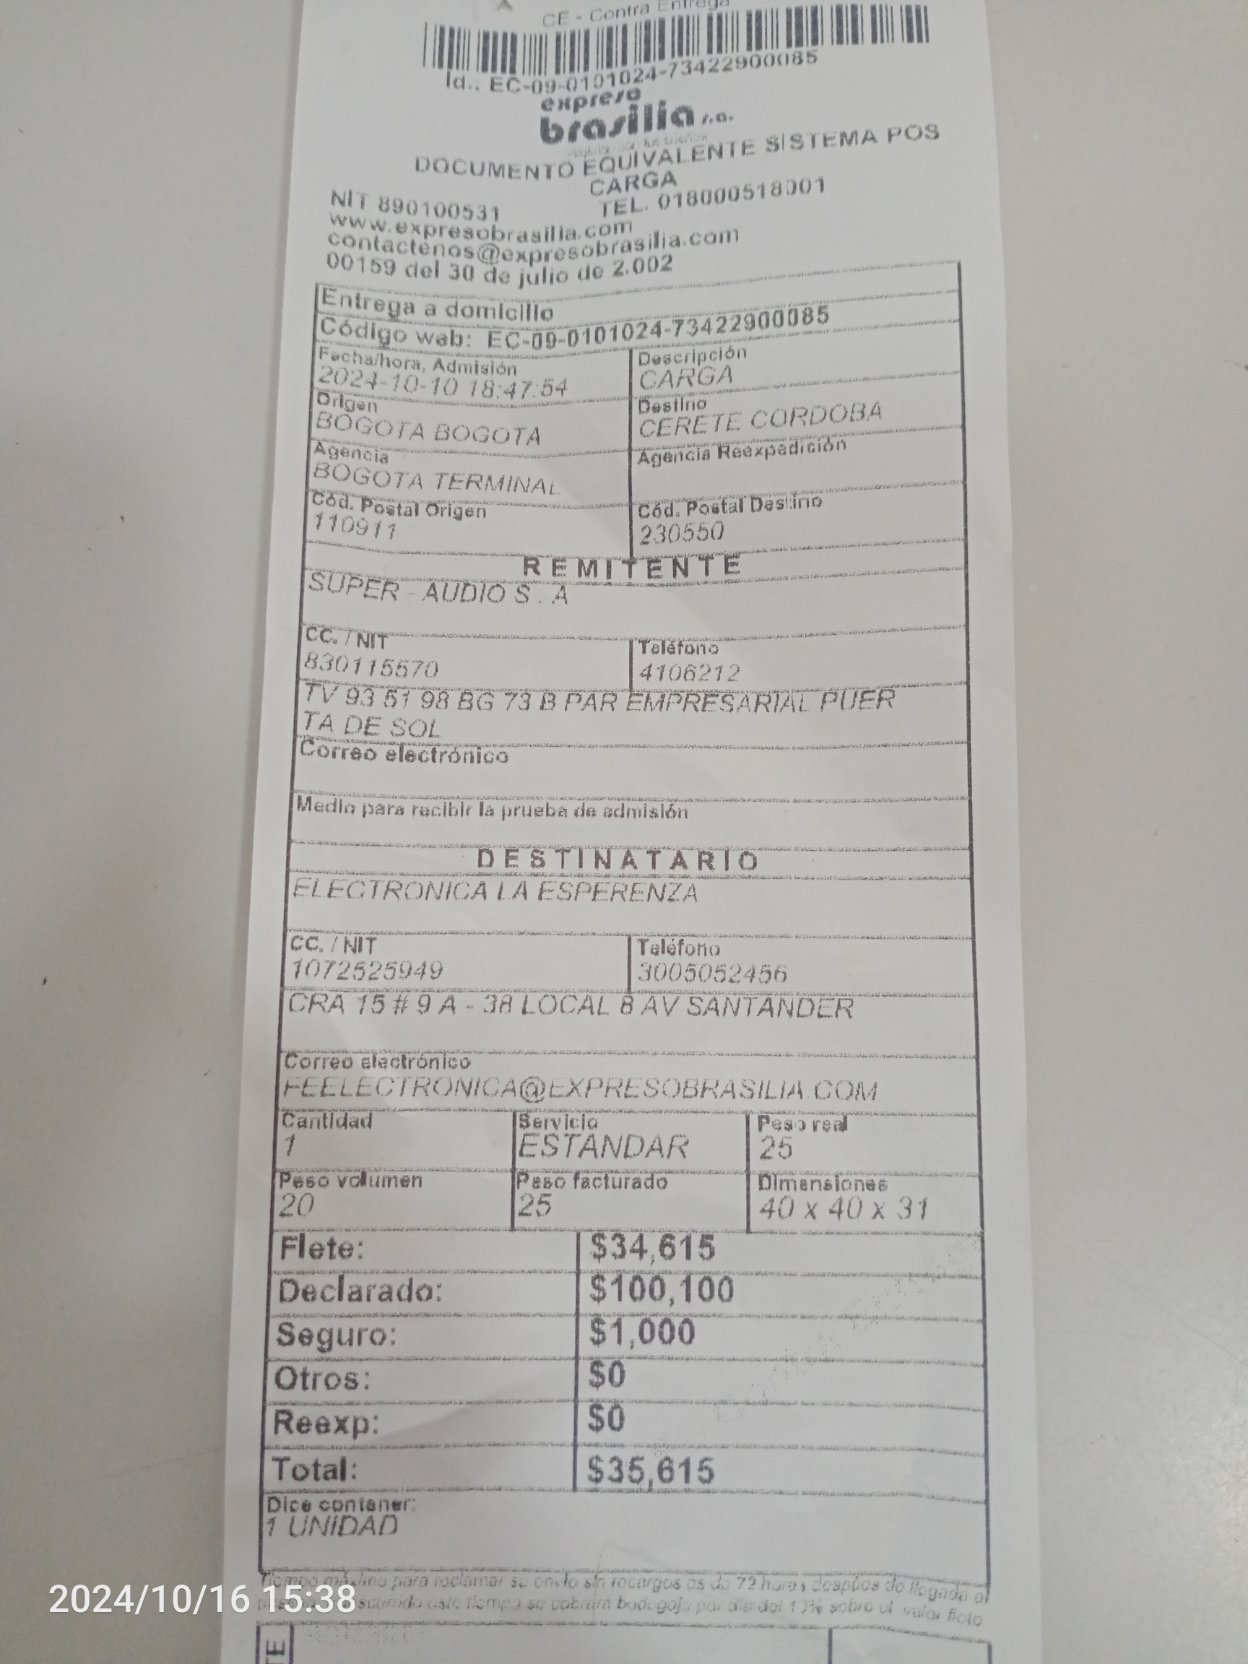 CE - Contra Entrega
Id.: EC-09-0101024-73422900085
expreso
brasilia s.a.
DOCUMENTO EQUIVALENTE SISTEMA POS
CARGA
NIT 890100531 TEL. 018000518001
www.expresobrasilia.com
contactenos@expresobrasilia.com
00159 del 30 de julio de 2.002
Entrega a domicilio
Código web: EC-09-0101024-73422900085
Fecha/hora, Admisión Descripción
2024-10-10 18:47:54 CARGA
Origen Destino
BOGOTA BOGOTA CERETE CORDOBA
Agencia Agencia Reexpedición
BOGOTA TERMINAL
Cód. Postal Origen Cód. Postal Destino
110911 230550
REMITENTE
SUPER - AUDIO S . A
CC. / NIT Teléfono
830115570 4106212
TV 93 51 98 BG 73 B PAR EMPRESARIAL PUER
TA DE SOL
Correo electrónico
Medio para recibir la prueba de admisión
DESTINATARIO
ELECTRONICA LA ESPERENZA
CC. / NIT Teléfono
1072525949 3005052456
CRA 15 # 9 A - 38 LOCAL 8 AV SANTANDER
Correo electrónico
FEELECTRONICA@EXPRESOBRASILIA.COM
Cantidad Servicio Peso real
1 ESTANDAR 25
Peso volumen Peso facturado Dimensiones
20 25 40 x 40 x 31
Flete: $34,615
Declarado: $100,100
Seguro: $1,000
Otros: $0
Reexp: $0
Total: $35,615
Dice contener:
1 UNIDAD
Tiempo máximo para reclamar su envío sin recargos es de 72 horas después de llegada al
este tiempo se cobrara bodegaje por día del 1 % sobre el valor flete
TE
2024/10/16 15:38